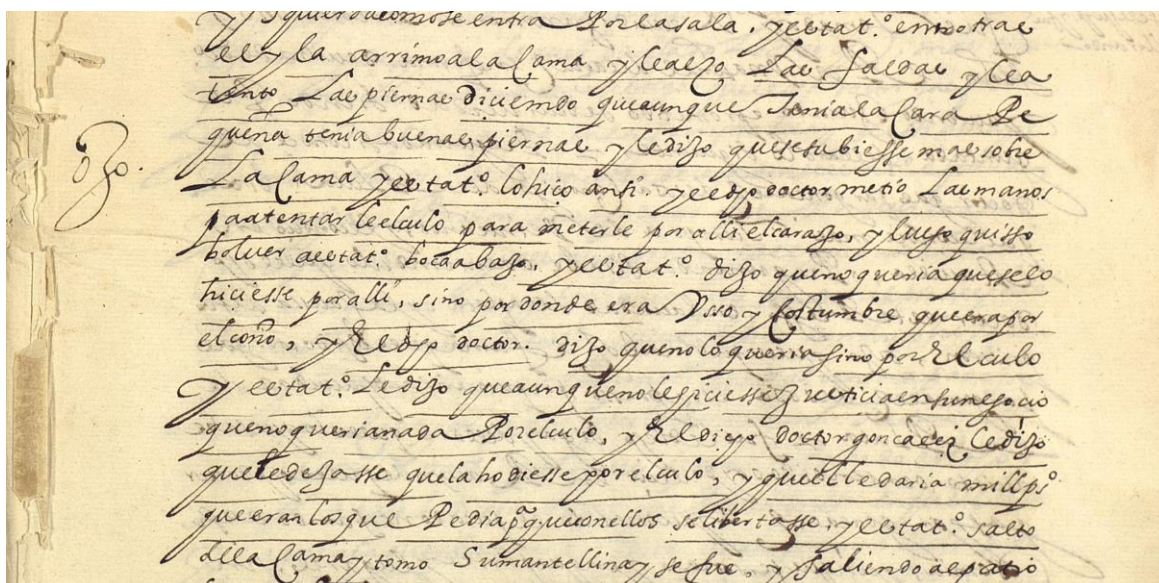 ysquierda como se entra Por la sala, y esta t.º entro tras
el y la arrimo a la Cama y le alço Las faldas y le a
tento Las piernas diciendo que aunque Tenia la Cara Pe
queña tenia buenas piernas y le dixo que se subiesse mas sobre
La Cama y esta t.º lo hico ansi. y el dho doctor metio Las manos
pa atentar le el culo para meterle por alli el caraxo, y luego quisso
bolver a esta t.º boca abaxo, y esta t.º dixo que no queria que se lo
hiciesse por alli, sino por donde era Vsso y Costumbre que era por
el coño, y El dho doctor. dixo que no lo queria sino por El culo
Y esta t.º Le dixo que aunque no le hiciesse Justicia en su negocio
que no queria nada Por el culo, y El dicho doctor gonçalez Le dixo
que le dexasse que la hodiesse por el culo, y que el le daria mill p.s
que eran los que Pedia pª que con ellos se libertasse, y esta t.º salto
de la Cama y tomo Su mantellina y se fue, y saliendo al patio
ojo.